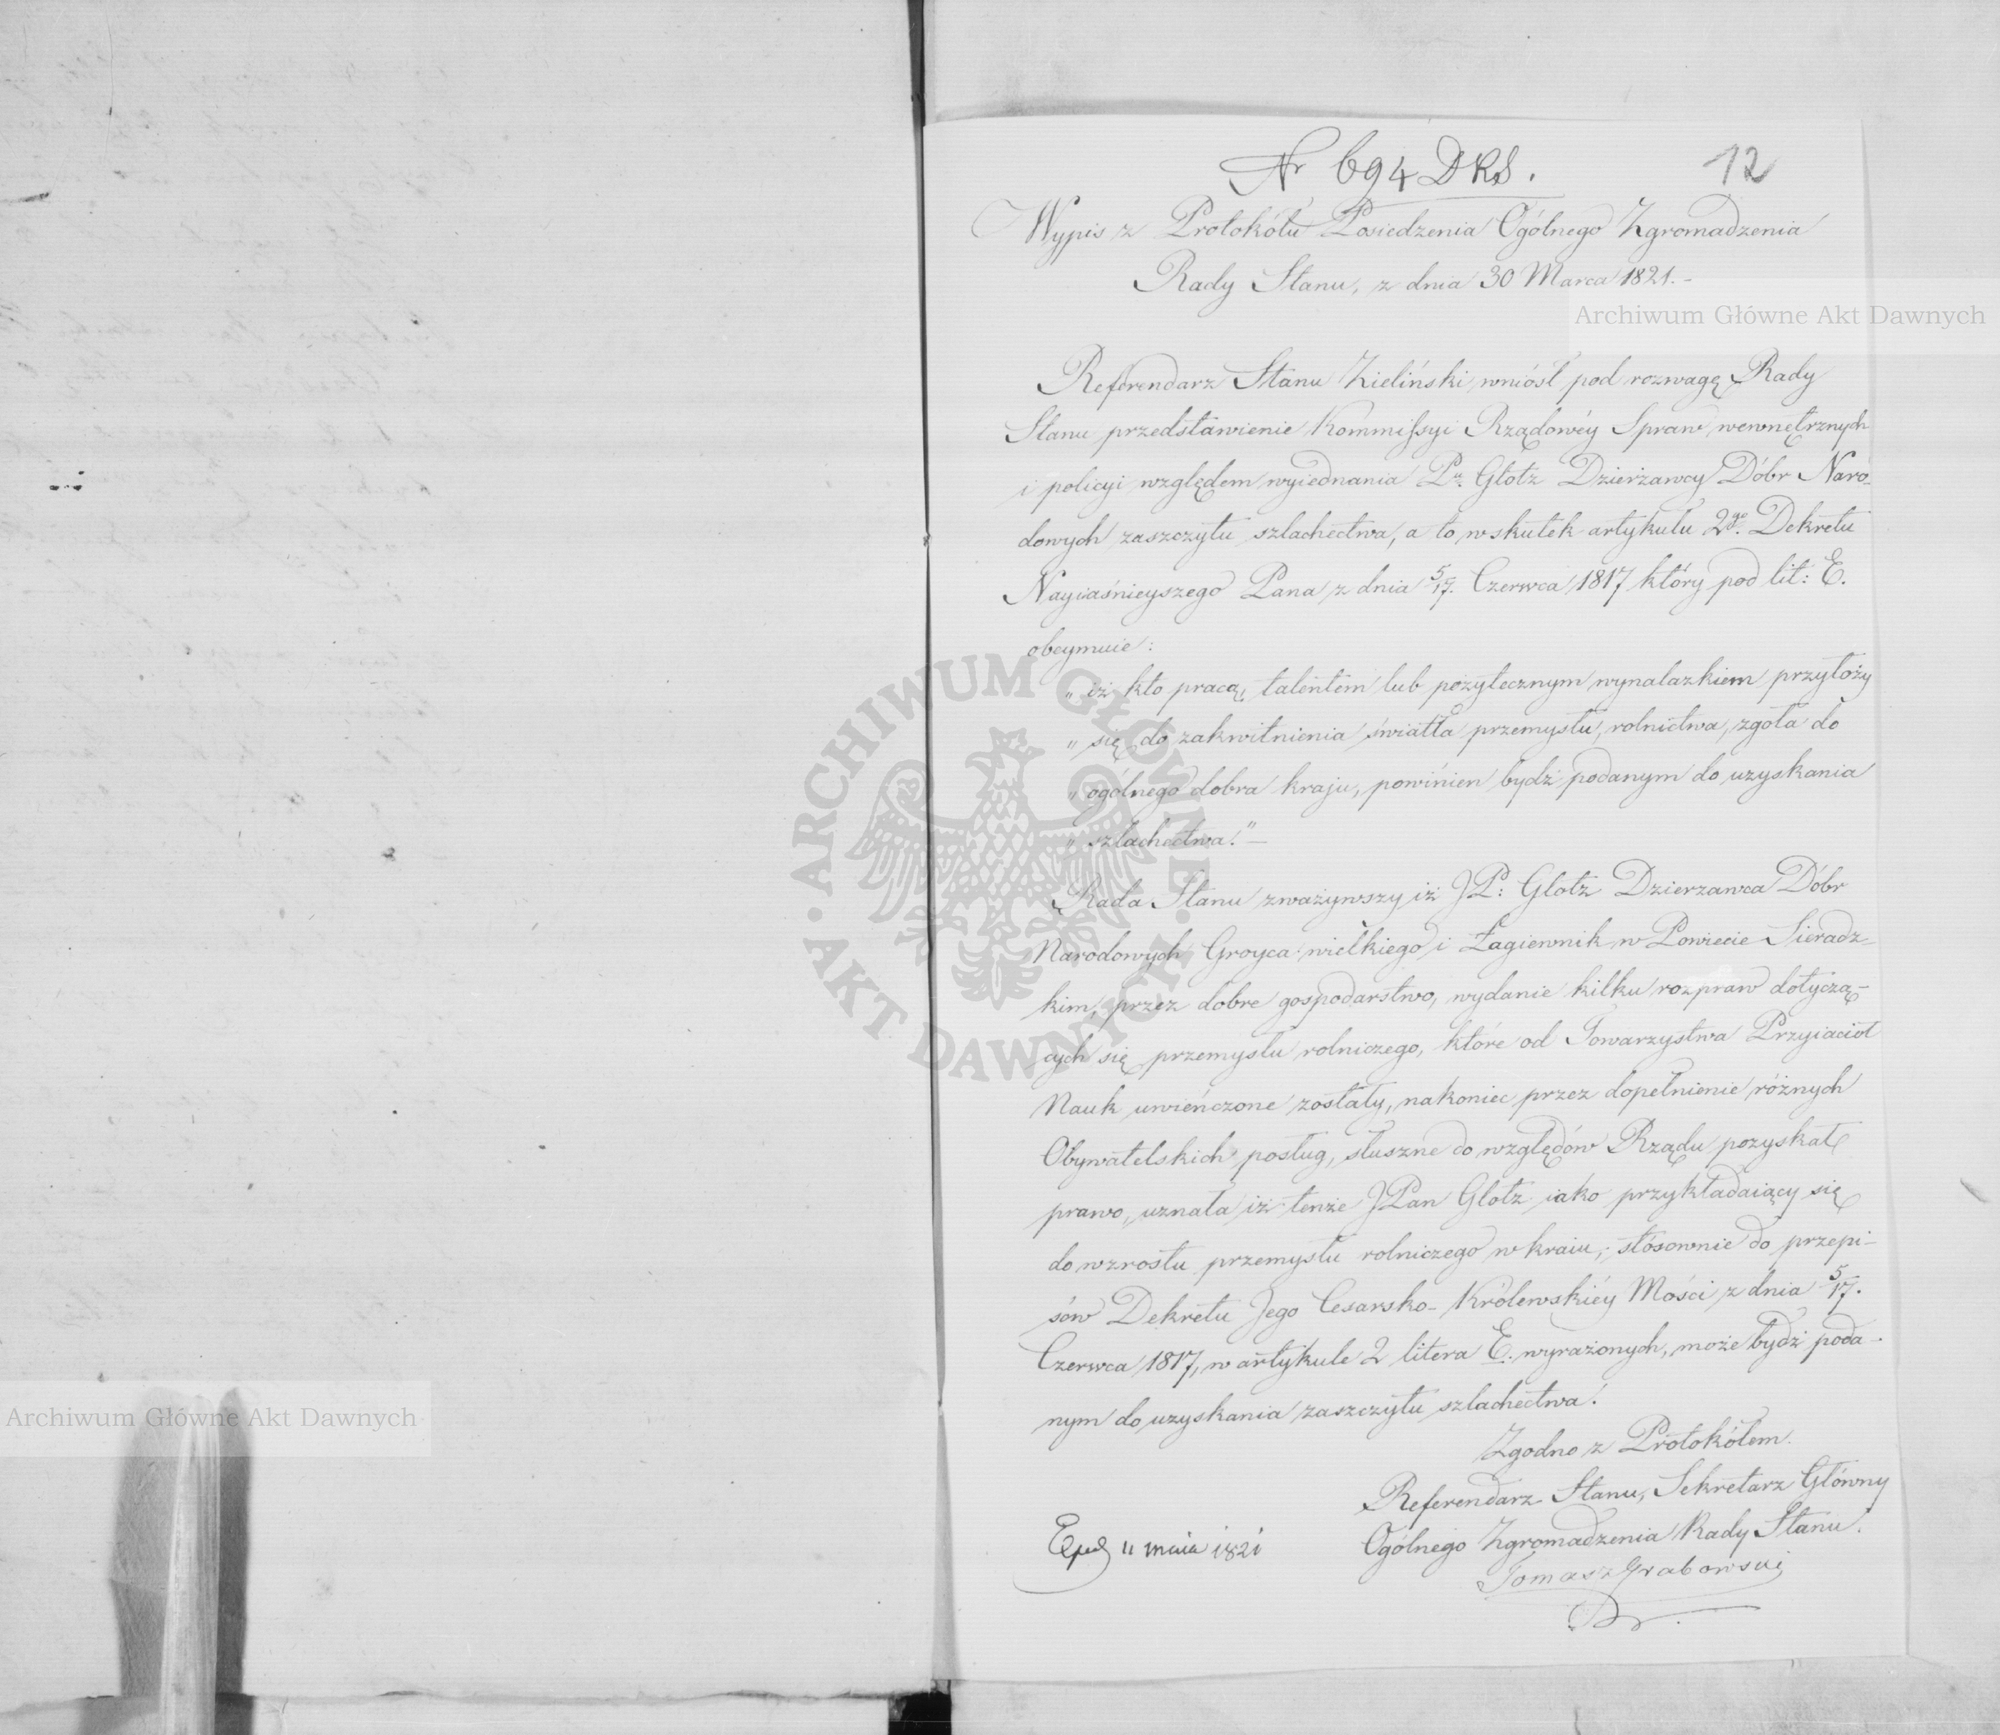 Nr 694 DRS.
12
Wypis z Protokółu Posiedzenia Ogólnego Zgromadzenia
Rady Stanu, z dnia 30 Marca 1821.-
Archiwum Główne Akt Dawnych
Referendarz Stanu Zieliński wniósł pod rozwagę Rady
Stanu przedstawienie Kommissyi Rządowéy Spraw wewnętrznych
i policyi względem wyiednania Pu. Glotz Dzierżawcy Dóbr Naro-
dowych zaszczytu szlachectwa, a to w skutek artykułu 2go. Dekretu
Nayiaśnieyszego Pana z dnia 5/17. Czerwca 1817 który pod lit: E.
obeymuie:
„ iż kto pracą, talentem lub pożytecznym wynalazkiem przyłoży
„ się do zakwitnienia światła przemysłu, rolnictwa, zgoła do
„ ogólnego dobra kraju, powinien bydź podanym do uzyskania
„ szlachectwa." —
Rada Stanu zważywszy iż JP: Glotz Dzierzawca Dóbr
Narodowych Groyca wielkiego i Łagiewnik w Powiecie Sieradz-
kim, przez dobre gospodarstwo, wydanie kilku rozpraw dotyczą-
cych się przemysłu rolniczego, które od Towarzystwa Przyiaciół
Nauk uwieńczone zostały, nakoniec przez dopełnienie różnych
Obywatelskich posług, słuszne do względów Rządu pozyskał
prawo, uznała iż tenże JPan Glotz iako przykładaiący się
do wzrostu przemysłu rolniczego w kraiu, stósownie do przepi-
sów Dekretu Jego Cesarsko-Królewskiéy Mości z dnia 5/17.
Czerwca 1817, w artykule 2 litera E. wyrażonych, może bydź poda-
nym do uzyskania zaszczytu szlachectwa.
Zgodno z Protokółem.
Referendarz Stanu, Sekretarz Główny
Ogólnego Zgromadzenia Rady Stanu.
Exped 11 maia 1821
Tomasz Grabowski
Archiwum Główne Akt Dawnych
ARCHIWUM GŁÓWNE · AKT DAWNYCH ·